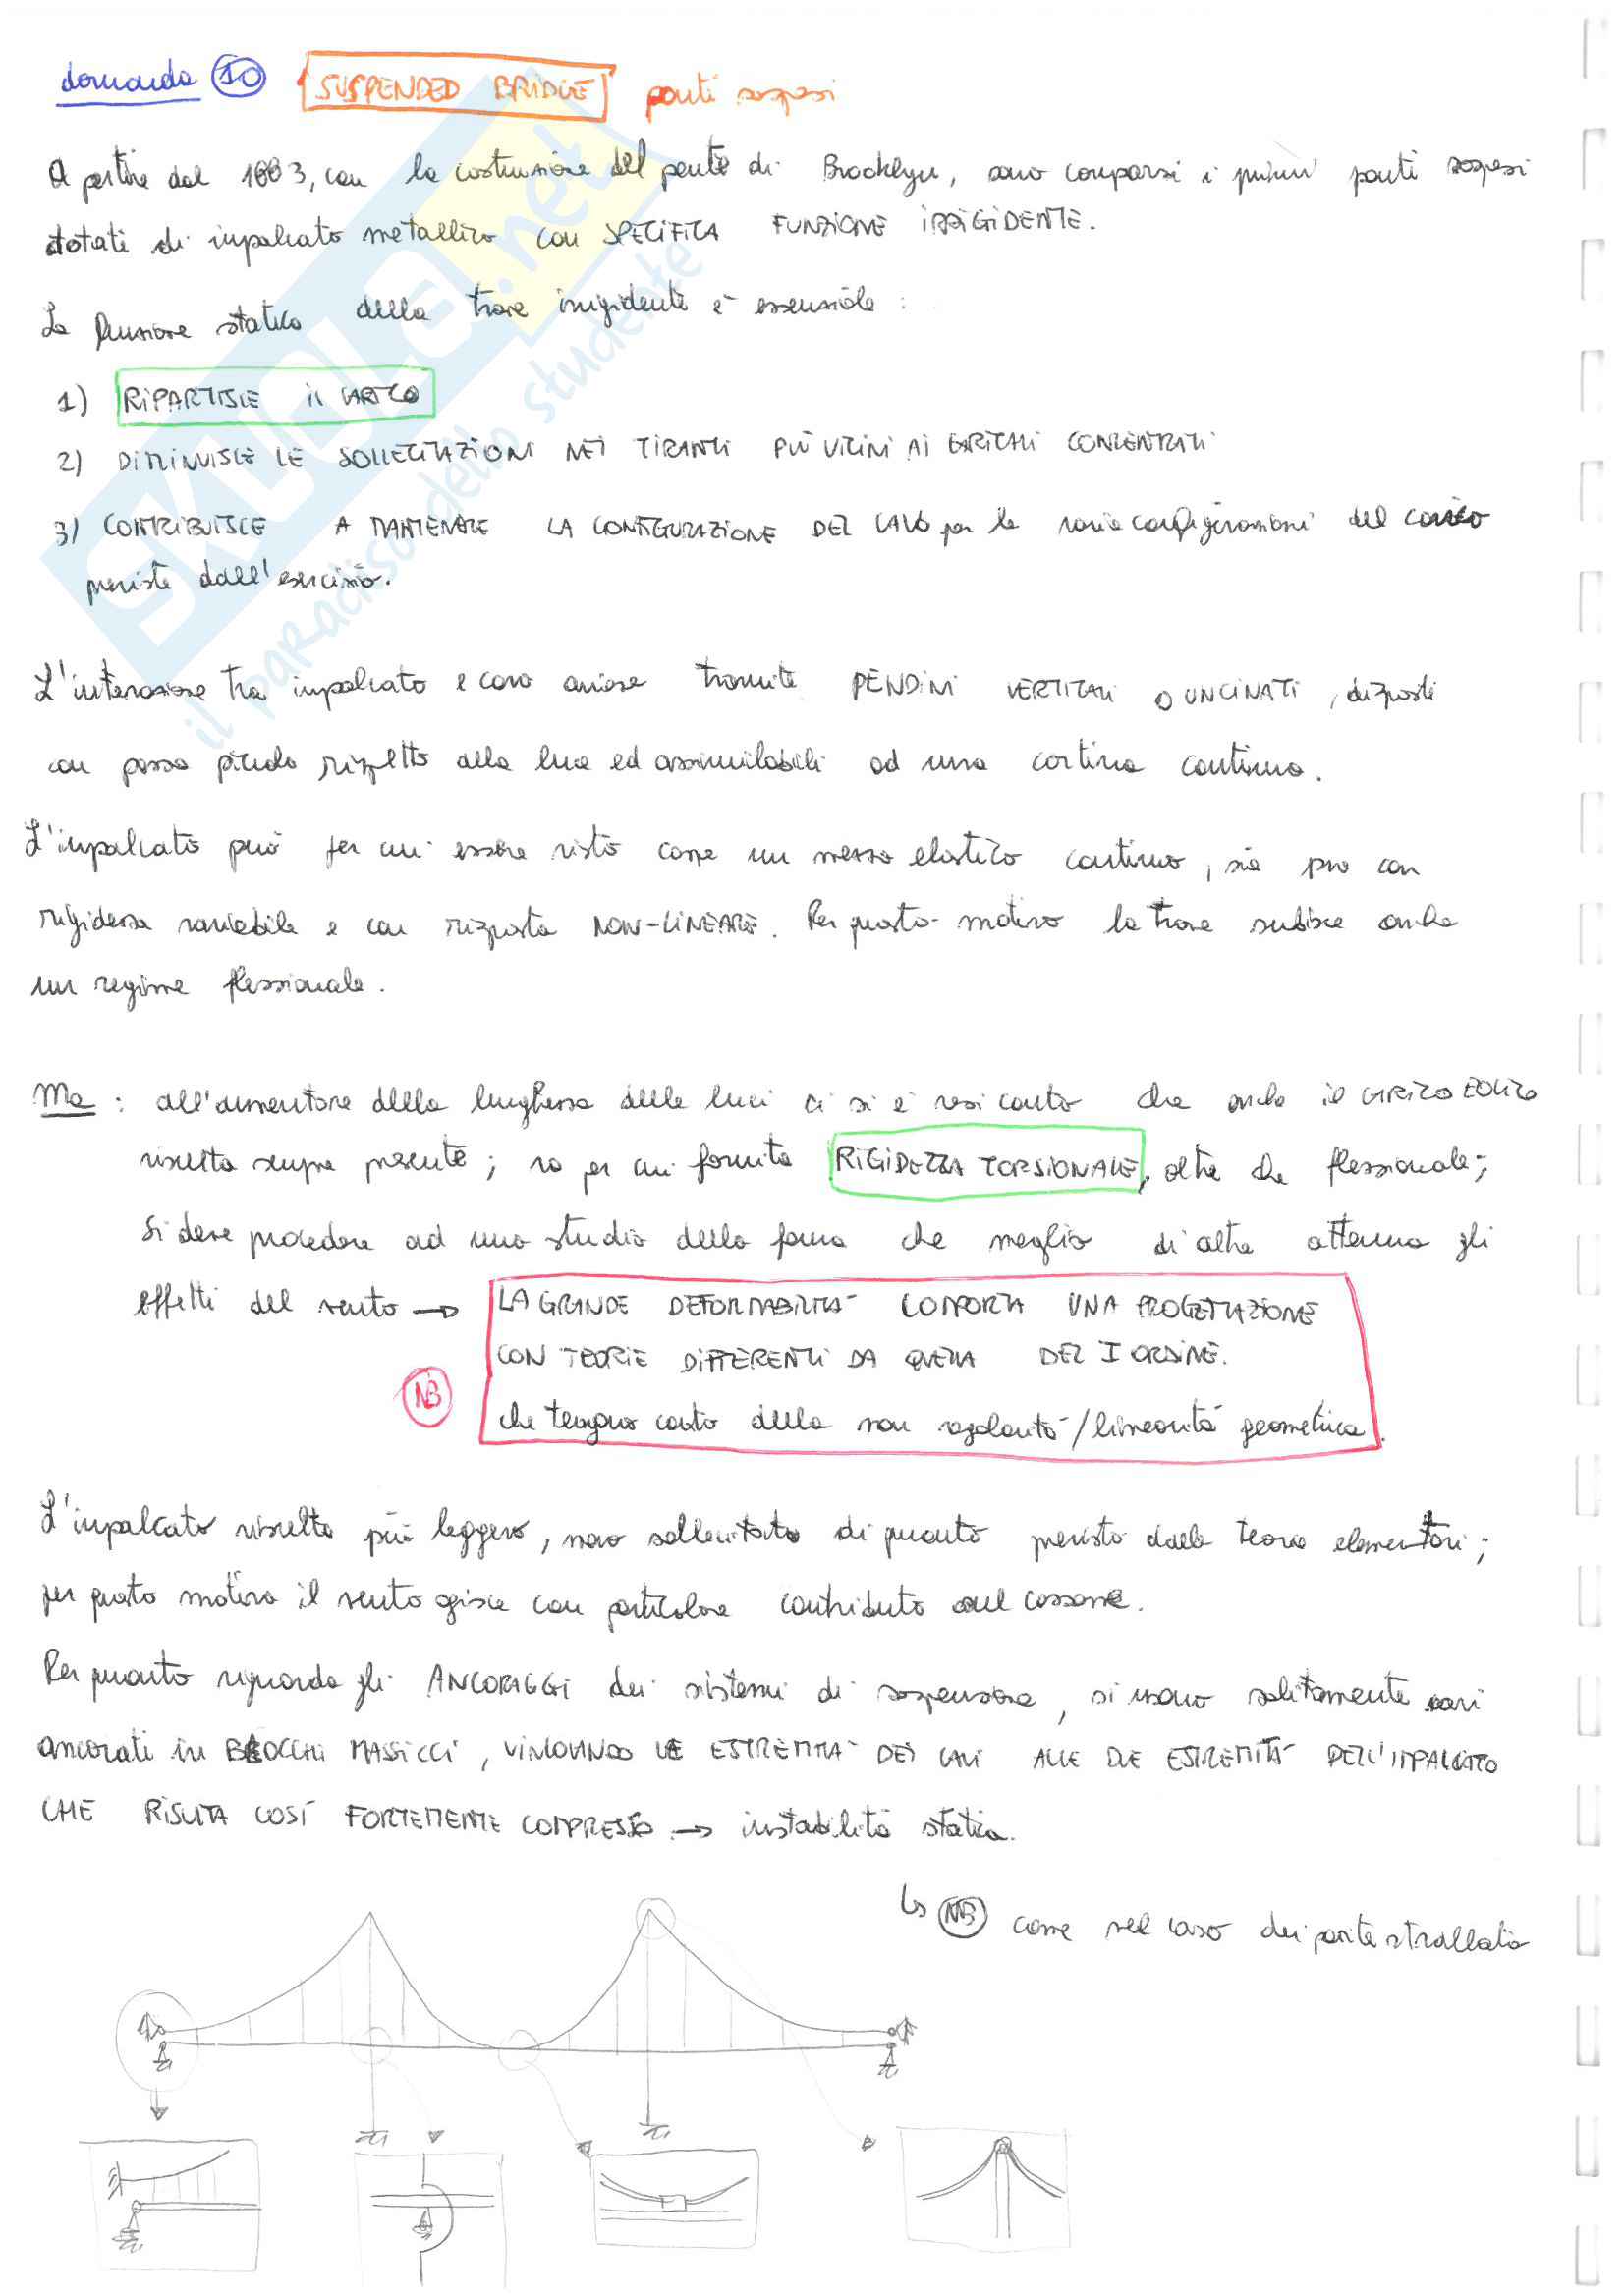 domanda 10 SUSPENDED BRIDGE ponti sospesi
A partire dal 1883, con la costruzione del ponte di Brooklyn, sono comparsi i primi ponti sospesi
dotati di impalcato metallico con SPECIFICA FUNZIONE IRRIGIDENTE.
La funzione statica della trave irrigidente è essenziale :
1) RIPARTISCE IL CARICO
2) DIMINUISCE LE SOLLECITAZIONI NEI TIRANTI PIÙ VICINI AI CARICHI CONCENTRATI
3) CONTRIBUISCE A MANTENERE LA CONFIGURAZIONE DEL CAVO per le varie configurazioni del carico
previste dall'esercizio.
L'interazione tra impalcato e cavo avviene tramite PENDINI VERTICALI O UNCINATI, disposti
con passo piccolo rispetto alla luce ed assimilabili ad una cortina continua.
L'impalcato può per cui essere visto come un mezzo elastico continuo, sia pur con
rigidezza variabile e con risposta NON-LINEARE. Per questo motivo la trave subisce anche
un regime flessionale.
Ma : all'aumentare della lunghezza delle luci ci si è resi conto che anche il CARICO EOLICO
risulta sempre presente; va per cui fornita RIGIDEZZA TORSIONALE, oltre che flessionale;
Si deve procedere ad uno studio della forma che meglio di altre attenua gli
effetti del vento → LA GRANDE DEFORMABILITÀ COMPORTA UNA PROGETTAZIONE
CON TEORIE DIFFERENTI DA QUELLA DEL I ORDINE.
NB che tengano conto della non linearità geometrica.
L'impalcato risulta più leggero, meno sollecitato di quanto previsto dalle teorie elementari;
per questo motivo il vento agisce con particolare contributo sul cassone.
Per quanto riguarda gli ANCORAGGI dei sistemi di sospensione, si usano solitamente cavi
ancorati in BLOCCHI MASSICCI, VINCOLANDO LE ESTREMITÀ DEI CAVI ALLE DUE ESTREMITÀ DELL'IMPALCATO
CHE RISULTA COSÍ FORTEMENTE COMPRESSO → instabilità statica.
↳ NB come nel caso dei ponte strallato
skuola.net
il paradiso dello studente